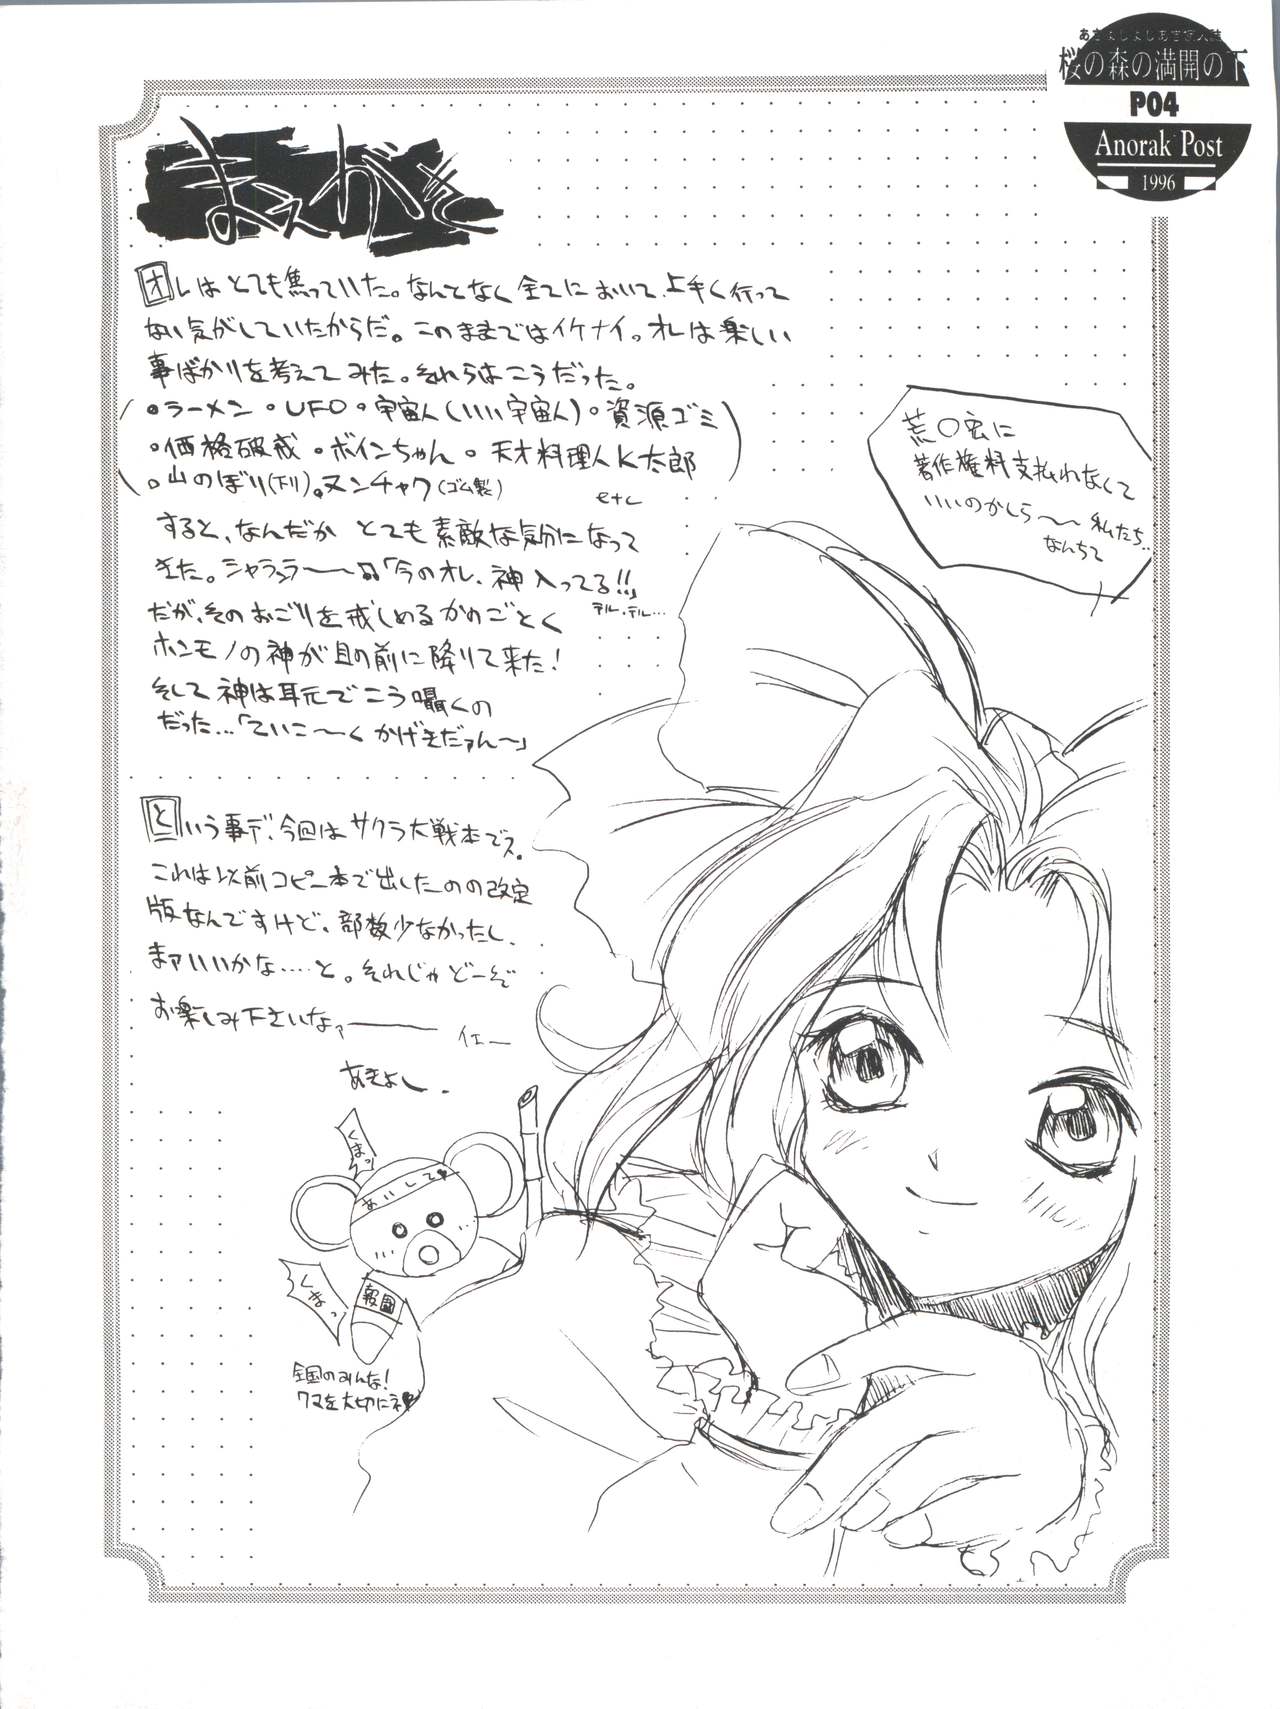 桜の森の満開の下
P04
Anorak Post
1996
まえがき
オレはとても焦っていた。なんとなく全てにおいて、上手く行って
ない気がしていたからだ。このままではイケナイっ。オレは楽しい
事ばかりを考えてみた。それらはこうだった。
(•ラーメン•UFO•宇宙人(いい宇宙人)•資源ゴミ
•価格破戒•ボインちゃん•天才料理人K太郎
•山のぼり(下り)•ヌンチャク(ゴム製) etc)
すると、なんだか とても素敵な気分になって
きた。シャララ〜〜♫「今のオレ、神入ってる!!」
テル、テル…
だが、そのおごりを戒しめるかのごとく
ホンモノの神が目の前に降りて来た!
そして神は耳元でこう囁くの
だった…「ていこ〜〜く かげきだァん〜」
という事デ、今回はサクラ大戦本でス。
これは以前コピー本で出したのの改定
版なんですけど、部数少なかったし、
まァいいかな……と。それじゃどーぞ
お楽しみ下さいなァ――― イエー
あきよし.
荒〇宏に
著作権料支払わなくて
いいのかしら〜〜私たち..
なんちて
くまっ
あいして♥
くまっ
報國
全国のみんな!
クマを大切にネ♥